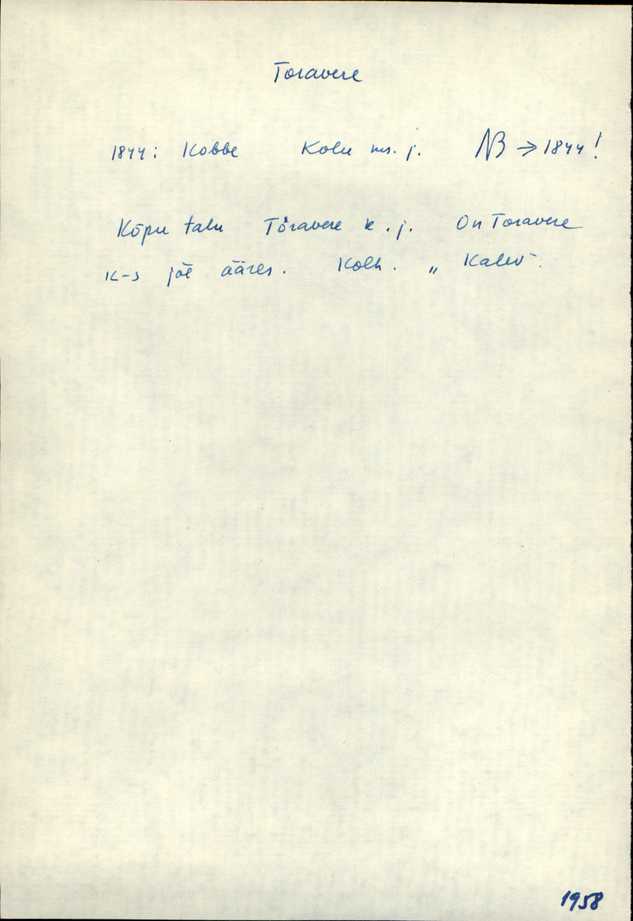 Toravere
1844: Kobbe Kolu ms. j. NB → 1844!
Kõpu talu Tõravere k. j. On Toravere
k-s jõe ääres. Kolh. „Kalev“.
1958